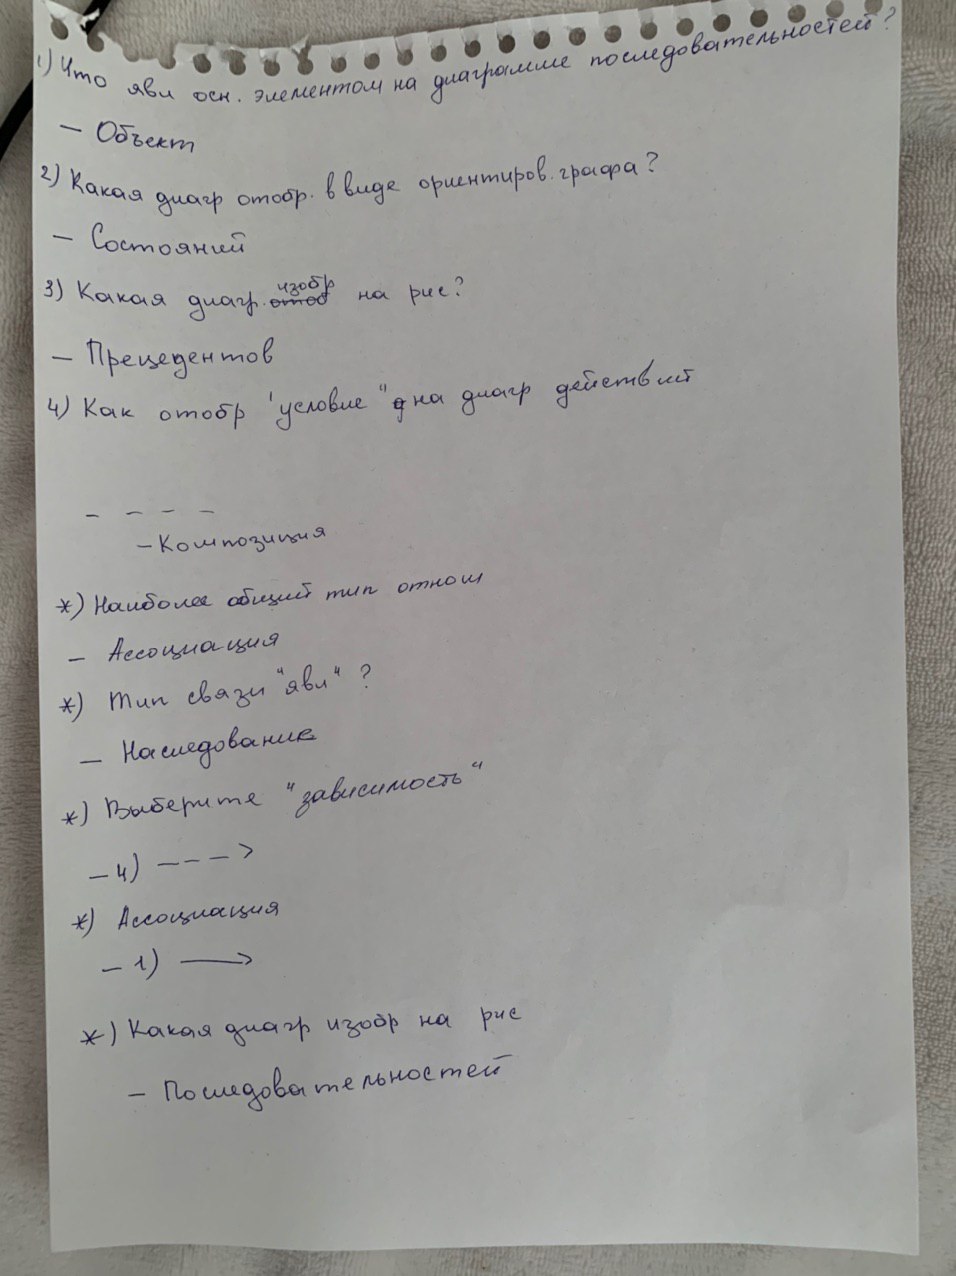 1) Что явл осн. элементом на диаграмме последовательностей?
— Объект
2) Какая диагр отобр. в виде ориентиров. графа?
— Состояний
3) Какая диагр. изобр на рис?
— Прецедентов
4) Как отобр "условие" на диагр действий
– – – –
– Композиция
*) Наиболее общий тип отнош
— Ассоциация
*) Тип связи "явл" ?
— Наследование
*) Выберите "зависимость"
– 4) – – – >
*) Ассоциация
– 1) ⟶
*) Какая диагр изобр на рис
— Последовательностей